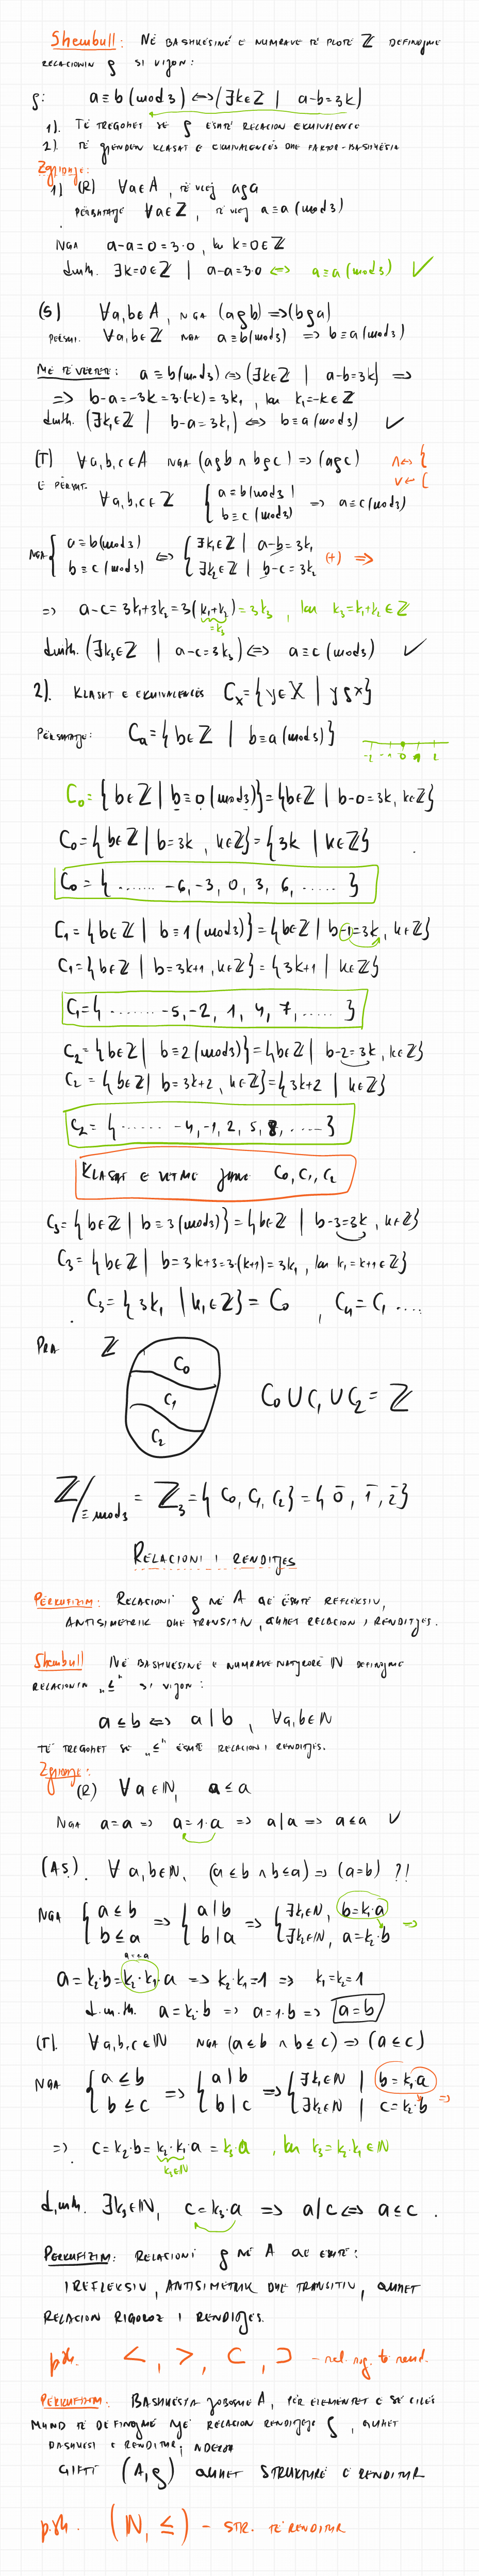 Shembull: NË BASHKËSINË E NUMRAVE TË PLOTË ℤ DEFINOJMË
RELACIONIN ρ SI VIJON:
ρ: a ≡ b (mod 3) ⟺ (∃k∈ℤ | a-b=3k)
1). TË TREGOHET SE ρ ËSHTË RELACION EKUIVALENCE
2). TË GJENDEN KLASAT E EKUIVALENCËS DHE FAKTOR-BASHKËSIA
Zgjidhje:
1) (R) ∀a∈A, TË VLEJ aρa
PËRSHTATJE ∀a∈ℤ, TË VLEJ a≡a (mod 3)
NGA a-a=0=3·0, ku k=0∈ℤ
d.m.th. ∃k=0∈ℤ | a-a=3·0 ⟺ a≡a (mod 3) ✓
(S) ∀a,b∈A, NGA (aρb) ⟹ (bρa)
PËRSHT. ∀a,b∈ℤ NGA a≡b(mod 3) ⟹ b≡a(mod 3)
ME TË VËRTETË: a≡b(mod 3) ⟺ (∃k∈ℤ | a-b=3k) ⟹
⟹ b-a=-3k=3·(-k)=3k₁, ku k₁=-k∈ℤ
d.m.th. (∃k₁∈ℤ | b-a=3k₁) ⟺ b≡a(mod 3) ✓
(T) ∀a,b,c∈A NGA (aρb ∧ bρc) ⟹ (aρc) ∧ ↔ {
E PËRSHT. ∀a,b,c∈ℤ { a≡b(mod 3) b≡c(mod 3) ⟹ a≡c(mod 3) ∨ ← [
NGA { a≡b(mod 3) b≡c(mod 3) ⟺ { ∃k₁∈ℤ | a-b=3k₁ ∃k₂∈ℤ | b-c=3k₂ (+) ⟹
⟹ a-c=3k₁+3k₂=3(k₁+k₂)=3k₃, ku k₃=k₁+k₂∈ℤ
=k₃
d.m.th. (∃k₃∈ℤ | a-c=3k₃) ⟺ a≡c(mod 3) ✓
2). KLASAT E EKUIVALENCËS Cₓ={y∈X | yρx}
PËRSHTATJE: Cₐ={b∈ℤ | b≡a(mod 3)}
-2 -1 0 1 2
C₀={b∈ℤ | b≡0(mod 3)}={b∈ℤ | b-0=3k, k∈ℤ}
C₀={b∈ℤ | b=3k, k∈ℤ}={3k | k∈ℤ}
C₀={....... -6,-3,0,3,6,.....}
C₁={b∈ℤ | b≡1(mod 3)}={b∈ℤ | b-1=3k, k∈ℤ}
C₁={b∈ℤ | b=3k+1, k∈ℤ}={3k+1 | k∈ℤ}
C₁={....... -5,-2,1,4,7,.....}
C₂={b∈ℤ | b≡2(mod 3)}={b∈ℤ | b-2=3k, k∈ℤ}
C₂={b∈ℤ | b=3k+2, k∈ℤ}={3k+2 | k∈ℤ}
C₂={...... -4,-1,2,5,8,.....}
KLASAT E VETME JANË C₀,C₁,C₂
C₃={b∈ℤ | b≡3(mod 3)}={b∈ℤ | b-3=3k, k∈ℤ}
C₃={b∈ℤ | b=3k+3=3·(k+1)=3k₁, ku k₁=k+1∈ℤ}
C₃={3k₁ | k₁∈ℤ}=C₀, C₄=C₁....
PRA ℤ
C₀
C₁
C₂
C₀∪C₁∪C₂=ℤ
ℤ/≡mod3 = ℤ₃={C₀,C₁,C₂}={0̄,1̄,2̄}
RELACIONI I RENDITJES
PËRKUFIZIM: RELACIONI ρ NË A QË ËSHTË REFLEKSIV,
ANTISIMETRIK DHE TRANSITIV, QUHET RELACION I RENDITJES.
Shembull NË BASHKËSINË E NUMRAVE NATYRORË ℕ DEFINOJMË
RELACIONIN "≤" SI VIJON:
a≤b ⟺ a|b, ∀a,b∈ℕ
TË TREGOHET SE "≤" ËSHTË RELACION I RENDITJES.
Zgjidhje:
(R) ∀a∈ℕ, a≤a
NGA a=a ⟹ a=1·a ⟹ a|a ⟹ a≤a ✓
(AS). ∀a,b∈ℕ, (a≤b ∧ b≤a) ⟹ (a=b) ?!
NGA { a≤b b≤a ⟹ { a|b b|a ⟹ { ∃k₁∈ℕ, b=k₁·a ∃k₂∈ℕ, a=k₂·b ⟹
a=k₂·b=k₂·k₁·a ⟹ k₂·k₁=1 ⟹ k₁=k₂=1
d.m.th. a=k₂·b ⟹ a=1·b ⟹ a=b
(T). ∀a,b,c∈ℕ NGA (a≤b ∧ b≤c) ⟹ (a≤c)
NGA { a≤b b≤c ⟹ { a|b b|c ⟹ { ∃k₁∈ℕ | b=k₁a ∃k₂∈ℕ | c=k₂·b ⟹
⟹ c=k₂·b=k₂·k₁·a=k₃·a, ku k₃=k₂·k₁∈ℕ
k₃∈ℕ
d.m.th. ∃k₃∈ℕ, c=k₃·a ⟹ a|c ⟺ a≤c.
PËRKUFIZIM: RELACIONI ρ NË A QË ËSHTË:
IREFLEKSIV, ANTISIMETRIK DHE TRANSITIV, QUHET
RELACION RIGOROZ I RENDITJES.
p.sh. <, >, ⊂, ⊃ - rel. rig. të rend.
PËRKUFIZIM: BASHKËSIA JOBOSHE A, PËR ELEMENTET E SË CILËS
MUND TË DEFINOJMË NJË RELACION RENDITJEJE ρ, QUHET
BASHKËSI E RENDITUR, NDËRSA
ÇIFTI (A,ρ) QUHET STRUKTURË E RENDITUR
p.sh. (ℕ,≤) - STR. TË RENDITUR